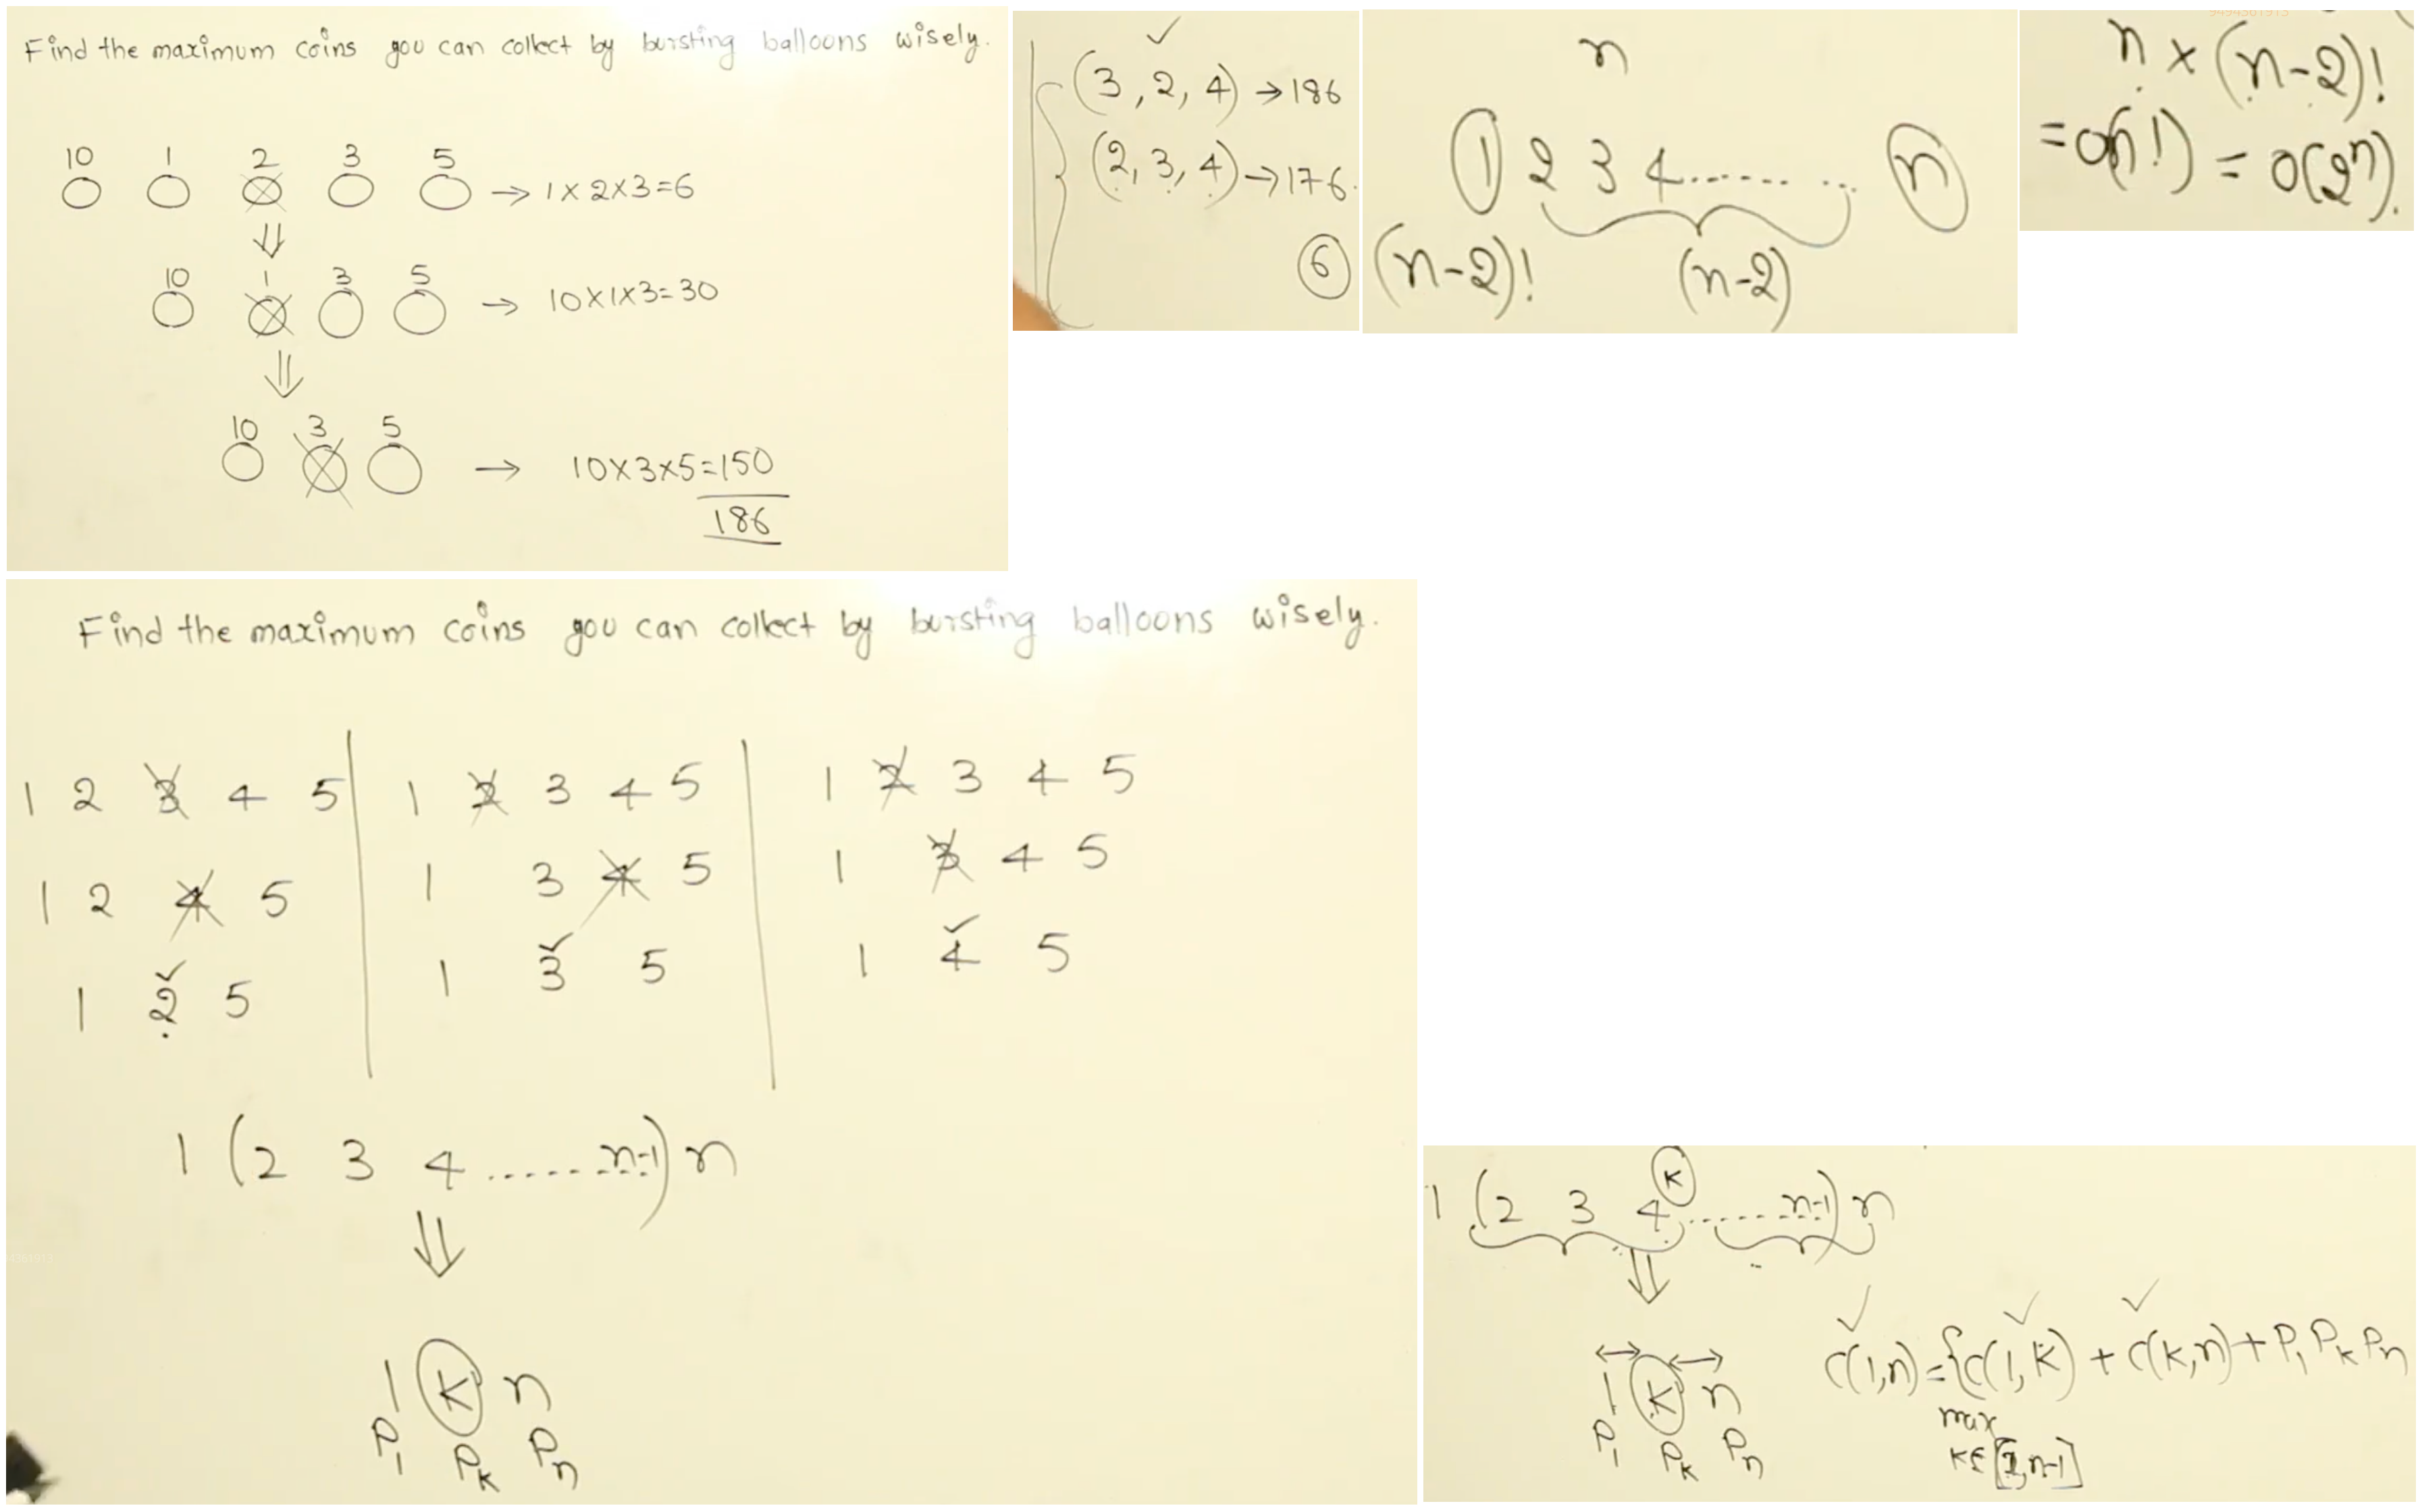 Find the maximum coins you can collect by bursting balloons wisely.
10 1 2 3 5 → 1 x 2 x 3 = 6
⇓
10 1 3 5 → 10 x 1 x 3 = 30
⇓
10 3 5 → 10 x 3 x 5 = 150
186
✓
(3, 2, 4) → 186
(2, 3, 4) → 176.
6
n
1 2 3 4 ........ n
(n-2)! (n-2)
n x (n-2)!
= O(n!) = O(2ⁿ).
Find the maximum coins you can collect by bursting balloons wisely.
1 2 3 4 5 | 1 2 3 4 5 | 1 2 3 4 5
1 2 4 5 | 1 3 4 5 | 1 3 4 5
1 2 5 | 1 3 5 | 1 4 5
1 (2 3 4 ........ n-1) n
⇓
1 K n
P₁ Pₖ Pₙ
K
1 (2 3 4 ........ n-1) n
⇓
1 K n
P₁ Pₖ Pₙ
C(1,n) = {C(1,K) + C(K,n) + P₁ Pₖ Pₙ
max
K∈[2,n-1]